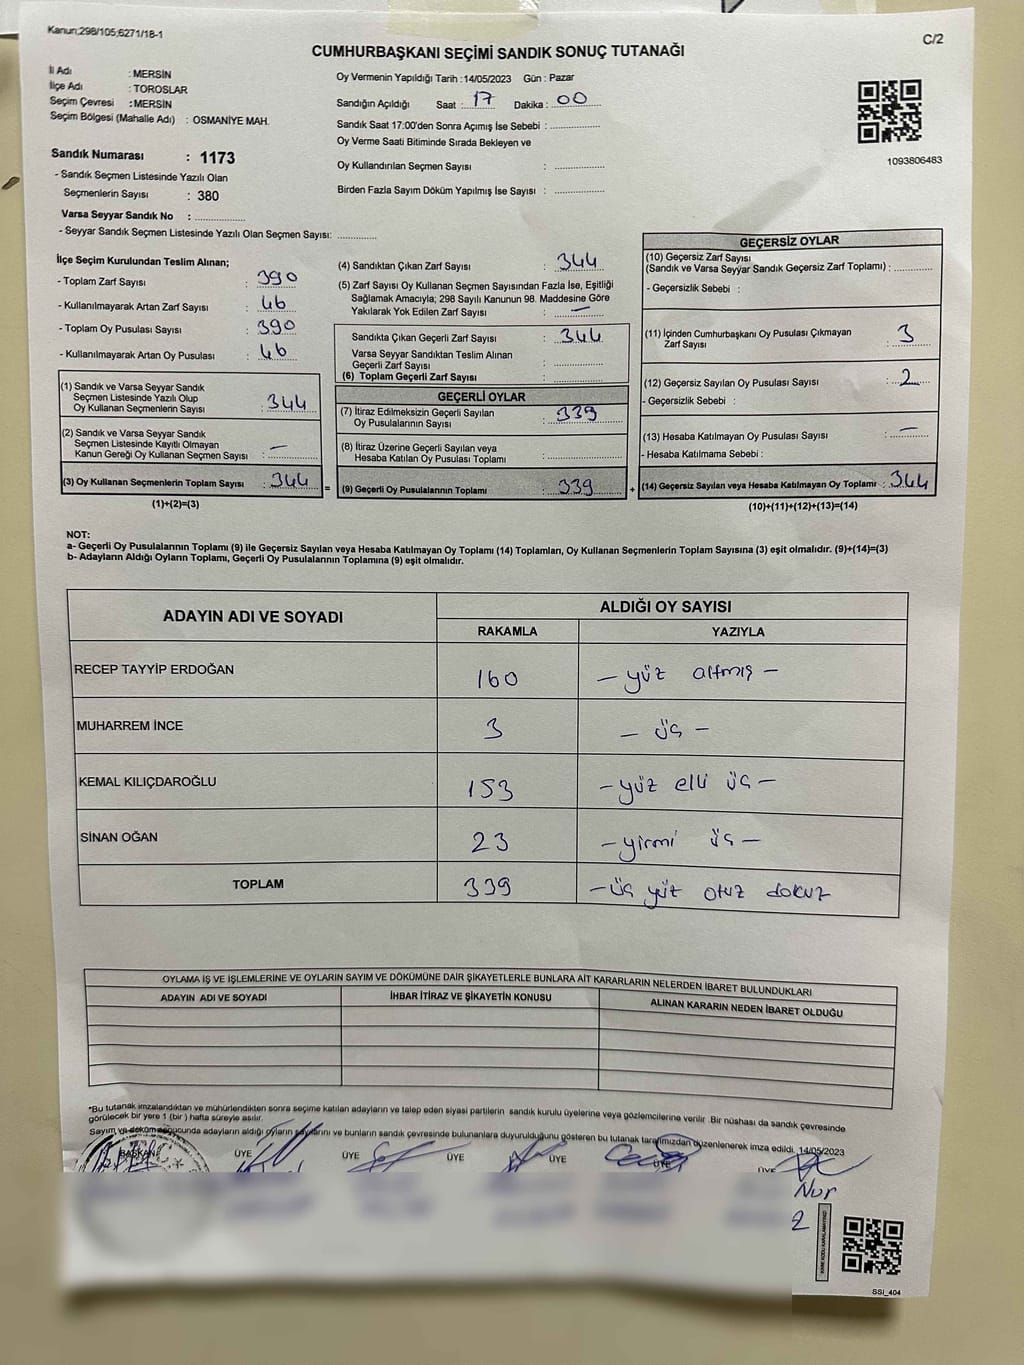 Kanun;298/105;6271/18-1
C/2
CUMHURBAŞKANI SEÇİMİ SANDIK SONUÇ TUTANAĞI
İl Adı : MERSİN
İlçe Adı : TOROSLAR
Seçim Çevresi : MERSİN
Seçim Bölgesi (Mahalle Adı) : OSMANİYE MAH.
Sandık Numarası : 1173
- Sandık Seçmen Listesinde Yazılı Olan
Seçmenlerin Sayısı : 380
Varsa Seyyar Sandık No :
- Seyyar Sandık Seçmen Listesinde Yazılı Olan Seçmen Sayısı:
Oy Vermenin Yapıldığı Tarih : 14/05/2023 Gün : Pazar
Sandığın Açıldığı Saat : 17 Dakika : 00
Sandık Saat 17:00'den Sonra Açımış İse Sebebi :
Oy Verme Saati Bitiminde Sırada Bekleyen ve
Oy Kullandırılan Seçmen Sayısı :
Birden Fazla Sayım Döküm Yapılmış İse Sayısı :
1093806483
İlçe Seçim Kurulundan Teslim Alınan;
- Toplam Zarf Sayısı : 390
- Kullanılmayarak Artan Zarf Sayısı : 46
- Toplam Oy Pusulası Sayısı : 390
- Kullanılmayarak Artan Oy Pusulası : 46
(1) Sandık ve Varsa Seyyar Sandık
Seçmen Listesinde Yazılı Olup
Oy Kullanan Seçmenlerin Sayısı : 344
(2) Sandık ve Varsa Seyyar Sandık
Seçmen Listesinde Kayıtlı Olmayan
Kanun Gereği Oy Kullanan Seçmen Sayısı : —
(3) Oy Kullanan Seçmenlerin Toplam Sayısı : 344
(1)+(2)=(3)
(4) Sandıktan Çıkan Zarf Sayısı : 344
(5) Zarf Sayısı Oy Kullanan Seçmen Sayısından Fazla İse, Eşitliği
Sağlamak Amacıyla; 298 Sayılı Kanunun 98. Maddesine Göre
Yakılarak Yok Edilen Zarf Sayısı : —
Sandıkta Çıkan Geçerli Zarf Sayısı : 344
Varsa Seyyar Sandıktan Teslim Alınan
Geçerli Zarf Sayısı :
(6) Toplam Geçerli Zarf Sayısı :
GEÇERLİ OYLAR
(7) İtiraz Edilmeksizin Geçerli Sayılan
Oy Pusulalarının Sayısı : 339
(8) İtiraz Üzerine Geçerli Sayılan veya
Hesaba Katılan Oy Pusulası Toplamı :
= (9) Geçerli Oy Pusulalarının Toplamı : 339
GEÇERSİZ OYLAR
(10) Geçersiz Zarf Sayısı
(Sandık ve Varsa Seyyar Sandık Geçersiz Zarf Toplamı) :
- Geçersizlik Sebebi :
(11) İçinden Cumhurbaşkanı Oy Pusulası Çıkmayan
Zarf Sayısı : 3
(12) Geçersiz Sayılan Oy Pusulası Sayısı : 2
- Geçersizlik Sebebi :
(13) Hesaba Katılmayan Oy Pusulası Sayısı : —
- Hesaba Katılmama Sebebi :
+ (14) Geçersiz Sayılan veya Hesaba Katılmayan Oy Toplamı : 344
(10)+(11)+(12)+(13)=(14)
NOT:
a- Geçerli Oy Pusulalarının Toplamı (9) ile Geçersiz Sayılan veya Hesaba Katılmayan Oy Toplamı (14) Toplamları, Oy Kullanan Seçmenlerin Toplam Sayısına (3) eşit olmalıdır. (9)+(14)=(3)
b- Adayların Aldığı Oyların Toplamı, Geçerli Oy Pusulalarının Toplamına (9) eşit olmalıdır.
ADAYIN ADI VE SOYADI
ALDIĞI OY SAYISI
RAKAMLA YAZIYLA
RECEP TAYYİP ERDOĞAN 160 — yüz altmış —
MUHARREM İNCE 3 — üç —
KEMAL KILIÇDAROĞLU 153 — yüz elli üç —
SİNAN OĞAN 23 — yirmi üç —
TOPLAM 339 — üç yüz otuz dokuz
OYLAMA İŞ VE İŞLEMLERİNE VE OYLARIN SAYIM VE DÖKÜMÜNE DAİR ŞİKAYETLERLE BUNLARA AİT KARARLARIN NELERDEN İBARET BULUNDUKLARI
ADAYIN ADI VE SOYADI İHBAR İTİRAZ VE ŞİKAYETİN KONUSU ALINAN KARARIN NEDEN İBARET OLDUĞU
*Bu tutanak imzalandıktan ve mühürlendikten sonra seçime katılan adayların ve talep eden siyasi partilerin sandık kurulu üyelerine veya gözlemcilerine verilir. Bir nüshası da sandık çevresinde
görülecek bir yere 1 (bir ) hafta süreyle asılır.
Sayım ve döküm sonucunda adayların aldığı oyların sayılarını ve bunların sandık çevresinde bulunanlara duyurulduğunu gösteren bu tutanak tarafımızdan düzenlenerek imza edildi. 14/05/2023
BAŞKAN ÜYE ÜYE ÜYE ÜYE ÜYE ÜYE
Nur
2
SSİ_404